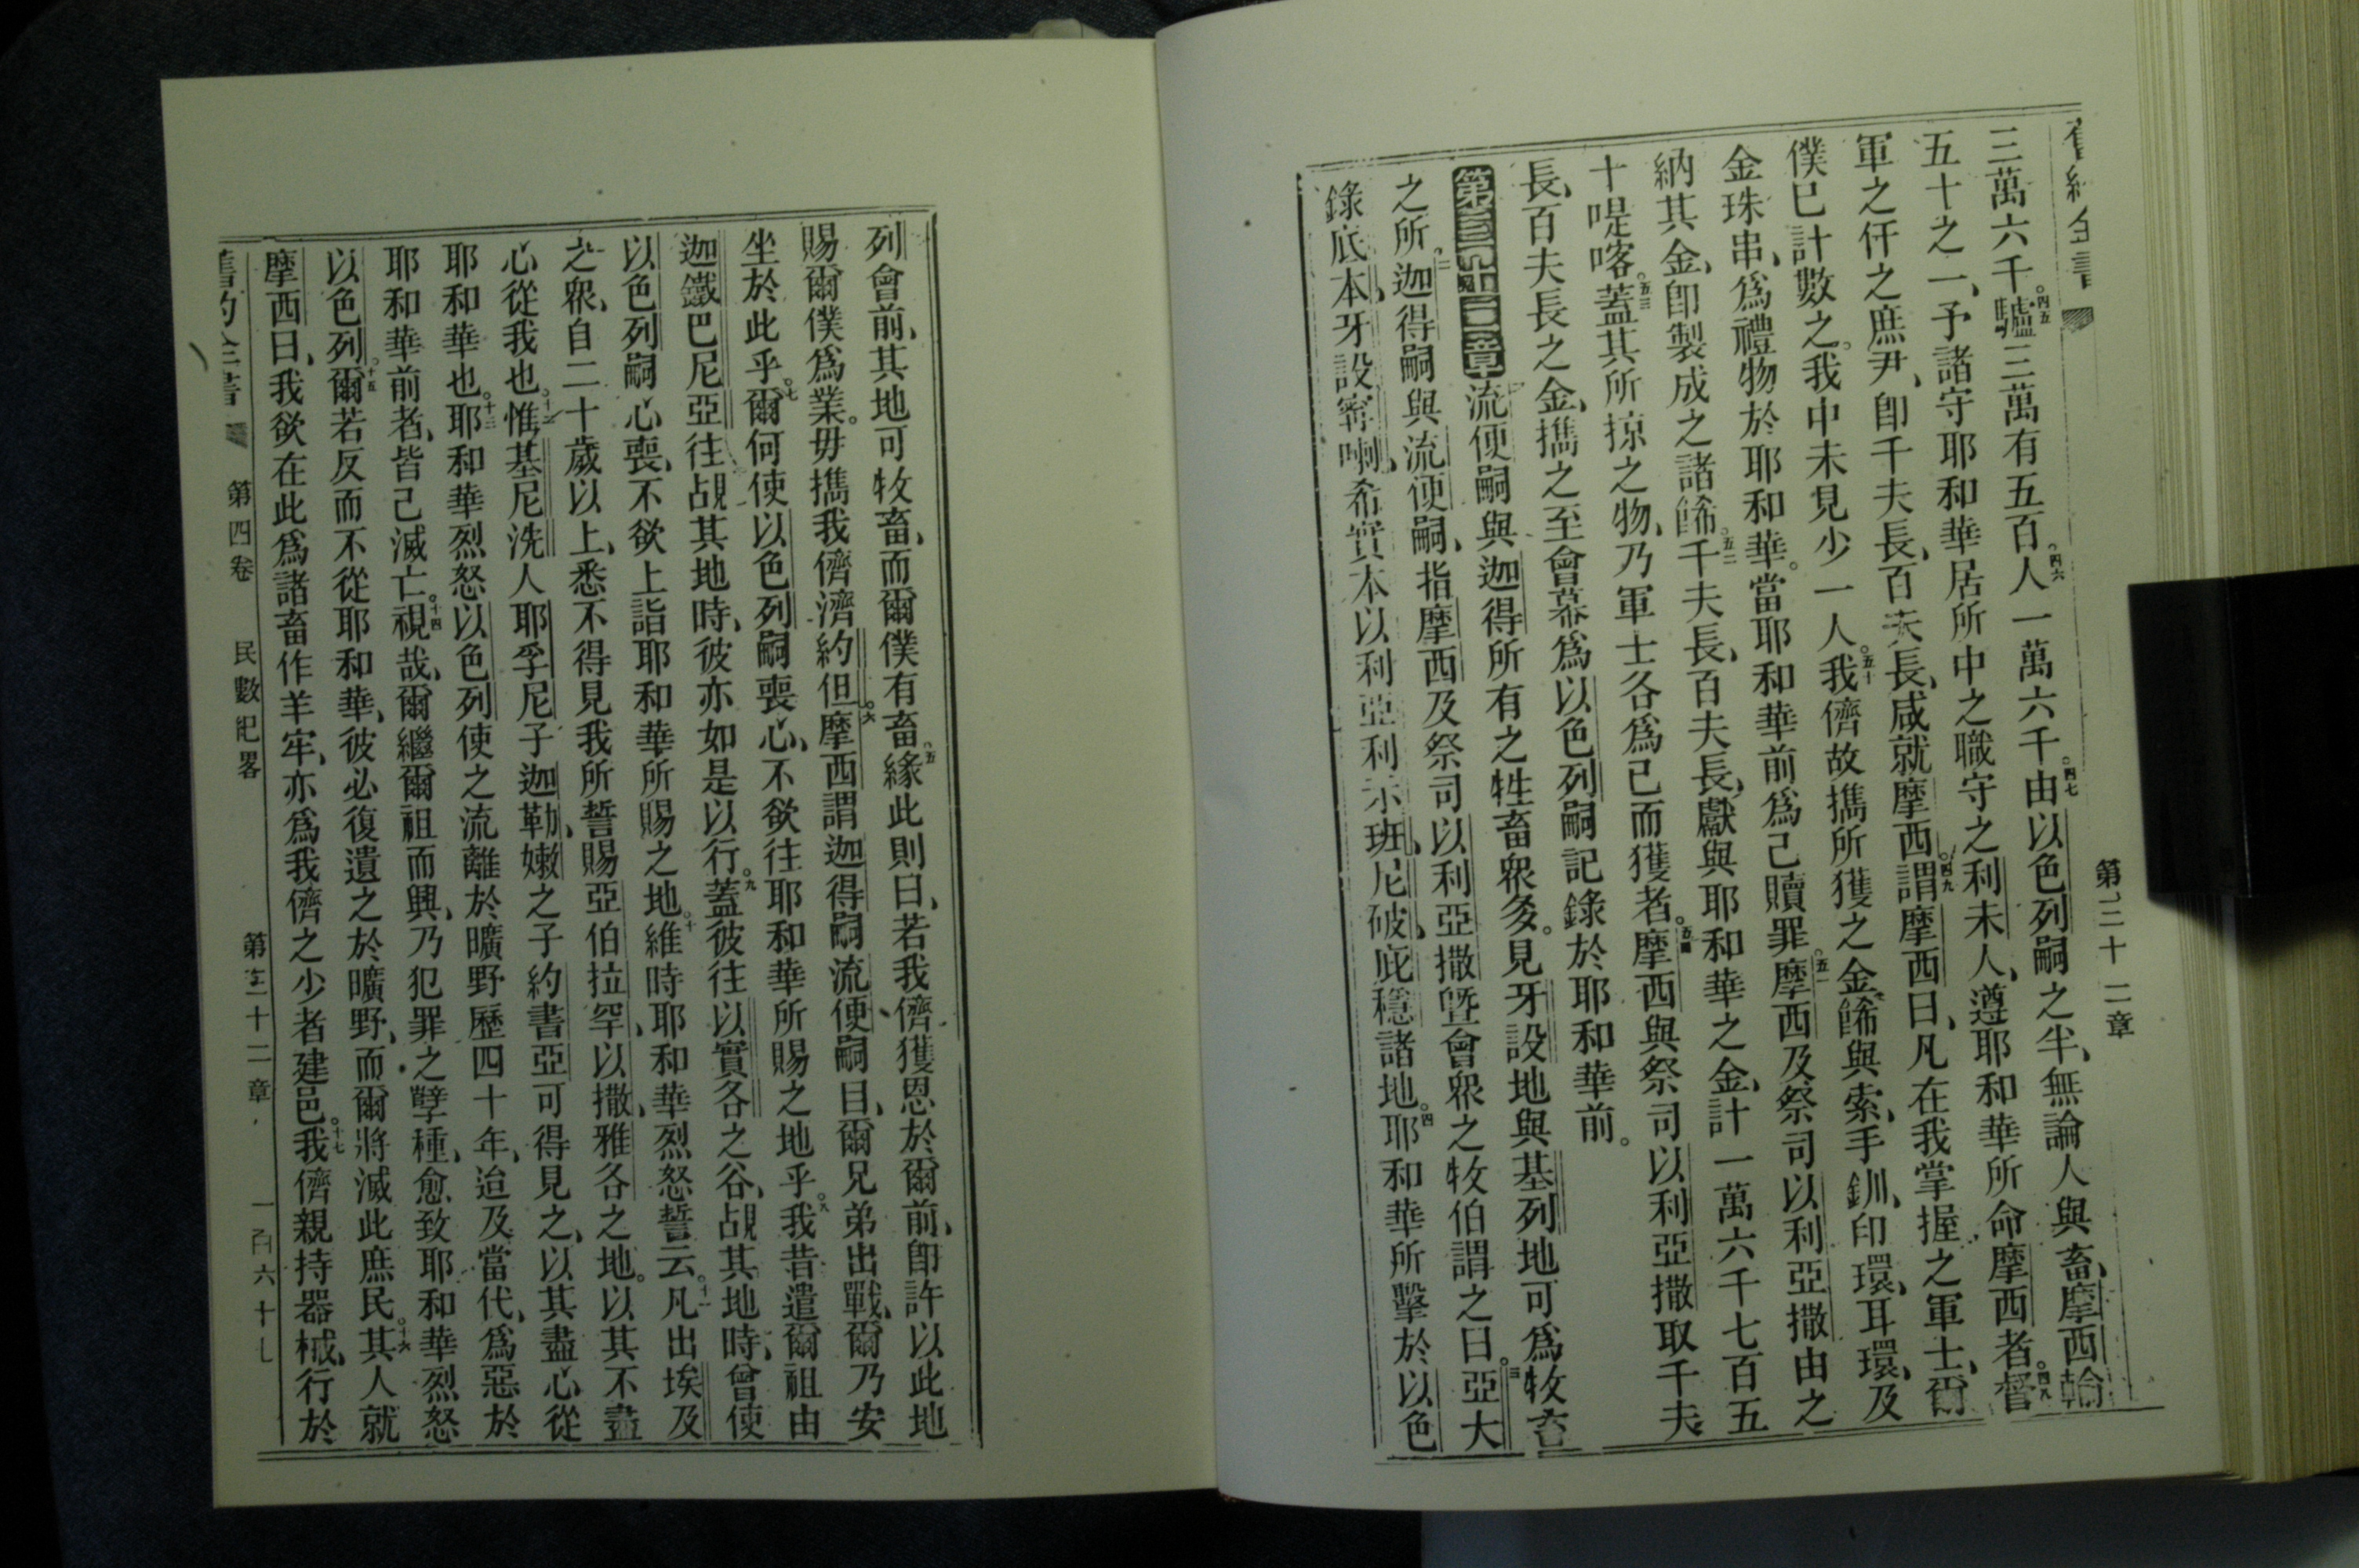 第三十二章
三萬六千。四五驢三萬有五百。四六人一萬六千。四七由以色列嗣之半、無論人與畜、摩西輪
五十之一、予諸守耶和華居所中之職守之利未人、遵耶和華所命摩西者。四八督
軍之仟之庶尹、卽千夫長、百夫長、咸就摩西。四九謂摩西曰、凡在我掌握之軍士、爾
僕已計數之。我中未見少一人。五十我儕故攜所獲之金餙與索、手釧、印環、耳環、及
金珠串、爲禮物於耶和華。當耶和華前爲己贖罪。五一摩西及祭司以利亞撒由之
納其金、卽製成之諸餙。五二千夫長、百夫長、獻與耶和華之金、計一萬六千七百五
十㖷喀。五三蓋其所掠之物、乃軍士各爲己而獲者。五四摩西與祭司以利亞撒取千夫
長、百夫長之金、攜之至會幕爲以色列嗣記錄於耶和華前。
第三十二章 流便嗣與迦得所有之牲畜衆多。見牙設地與基列地可爲牧畜
之所。二迦得嗣與流便嗣、指摩西及祭司以利亞撒曁會衆之牧伯謂之曰。三亞大
錄底本、牙設、寧喇、希實本以利亞利、示班、尼破、庇穩諸地。四耶和華所擊於以色
列會前、其地可牧畜、而爾僕有畜。五緣此則曰、若我儕獲恩於爾前、卽許以此地
賜爾僕爲業。毋攜我儕濟約但。六摩西謂迦得嗣流便嗣曰、爾兄弟出戰、爾乃安
坐於此乎。七爾何使以色列嗣喪心、不欲往耶和華所賜之地乎。八我昔遣爾祖由
迦鐵巴尼亞往覘其地時、彼亦如是以行。九蓋彼往以實各之谷、覘其地時、曾使
以色列嗣心喪、不欲上詣耶和華所賜之地。十維時耶和華烈怒誓云。十一凡出埃及
之衆、自二十歲以上、悉不得見我所誓賜亞伯拉罕、以撒、雅各之地。以其不盡
心從我也。十二惟基尼洗人耶孚尼子迦勒、嫩之子約書亞可得見之、以其盡心從
耶和華也。十三耶和華烈怒以色列使之流離於曠野歷四十年、迨及當代、爲惡於
耶和華前者、皆已滅亡。十四視哉、爾繼爾祖而興、乃犯罪之孽種、愈致耶和華烈怒
以色列。十五爾若反而不從耶和華、彼必復遺之於曠野、而爾將滅此庶民。十六其人就
摩西曰、我欲在此爲諸畜作羊牢、亦爲我儕之少者建邑。十七我儕親持器械、行於
舊約全書 第四卷 民數紀畧 第三十二章 一百六十七